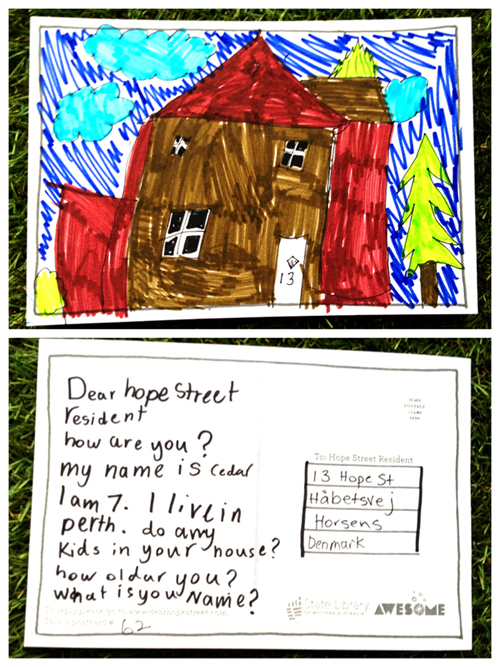 13
Dear hope street
resident
how are you?
my name is cedar
I am 7. I live in
perth. do any
kids in your house?
how old ar you?
what is you Name?
62
PLACE
POSTAGE
STAMP
HERE
To: Hope Street Resident
13 Hope St
Håbetsvej
Horsens
Denmark
State Library
AWESOME